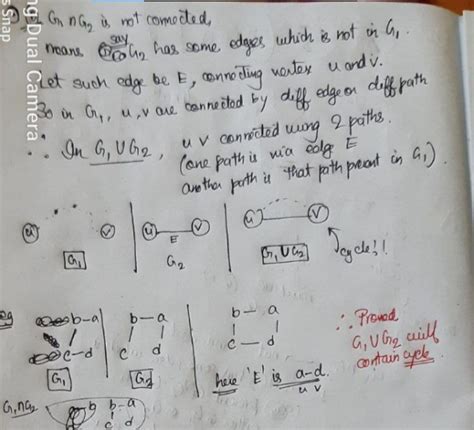 If G₁ ∩ G₂ is not connected,
means say G₂ has some edges which is not in G₁.
Let such edge be E, connecting vertex u and v.
So in G₁, u, v are connected by diff edge or diff path
∴ In G₁ ∪ G₂, u v connected using 2 paths.
(one path is via edge E
another path is that path present in G₁).
u v
G₁
u v
E
G₂
u v
G₁ ∪ G₂
cycle!!
eg
b–a
c–d
G₁
b–a
c d
G₂
b–a
c–d
here 'E' is a–d.
u v
∴ Proved
G₁ ∪ G₂ will
contain cycle.
G₁ ∩ G₂
b b–a
c d
ng Dual Camera
s Snap